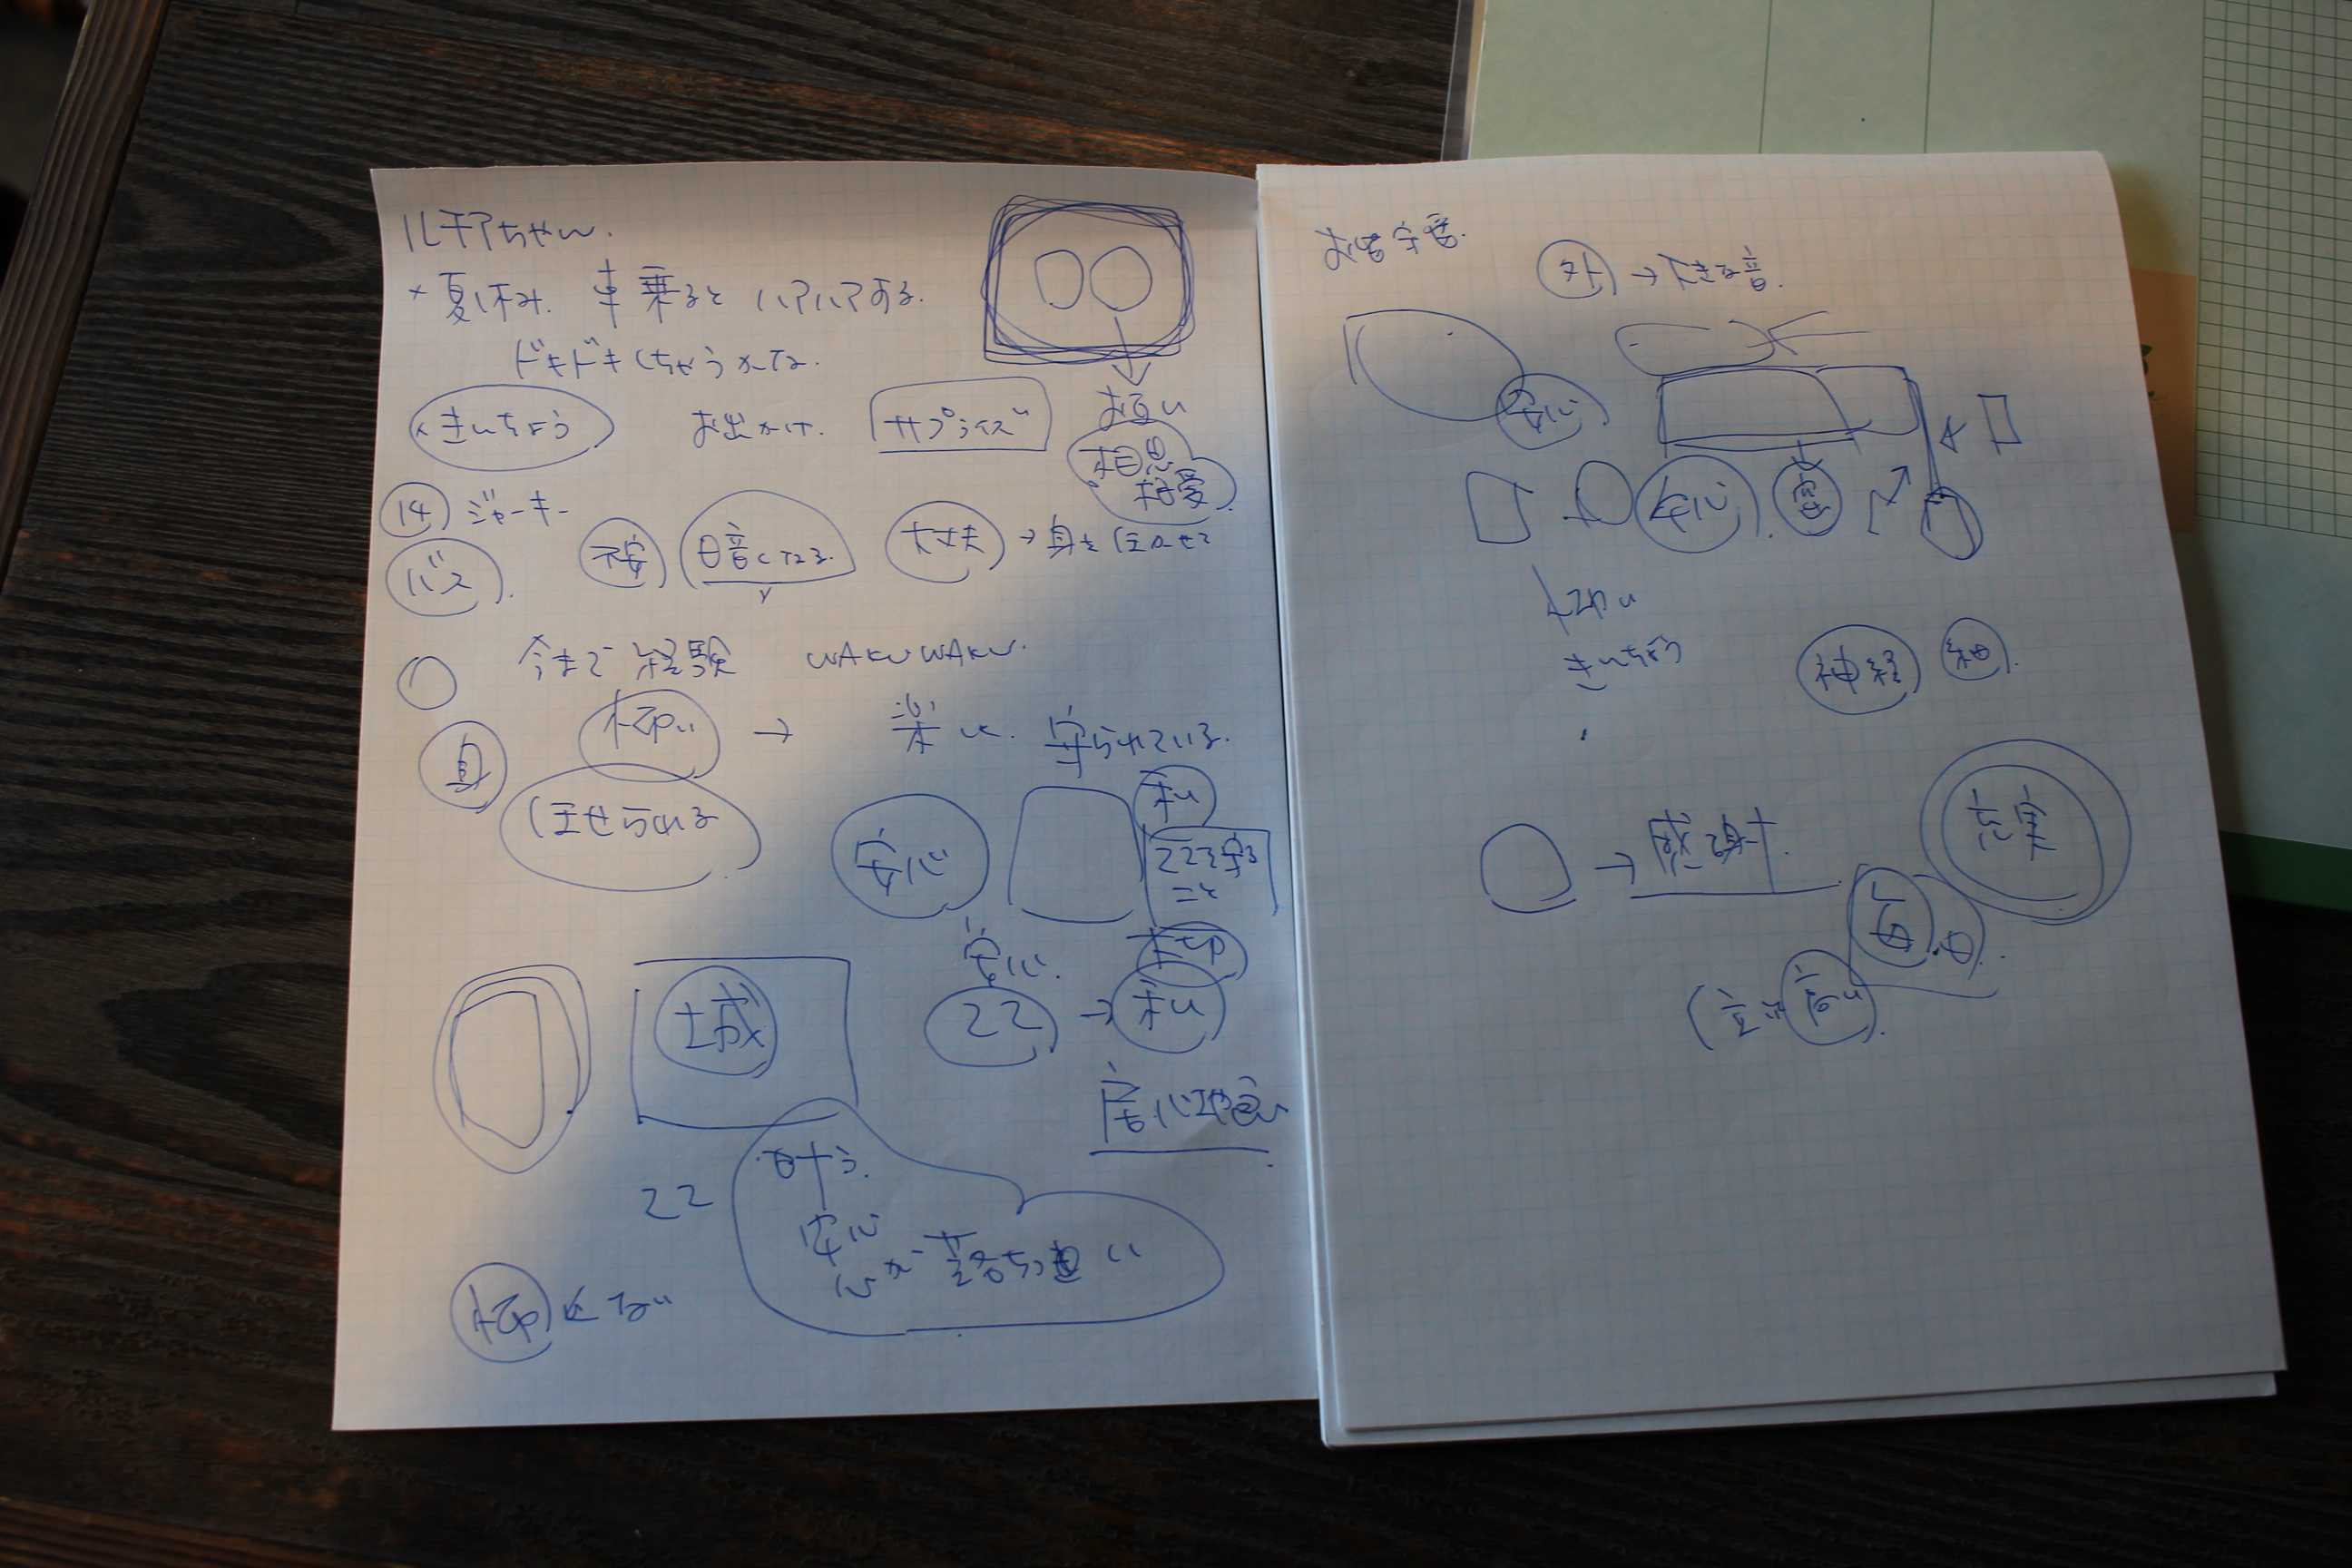 ルキアちゃん.
夏休み. 車乗ると ハアハアする.
ドキドキしちゃうかな.
きんちょう お出かけ. サプライズ
お互い
相思
相愛
14 ジャーキー
バス 不安 暗くなる. 大丈夫 → 身を
今まで 経験 WAKUWAKU.
怖い → 楽に. 守られている.
身
任せられる
安心
私
ココを守る
こと
安心.
ココ → 私
城
居心地
ココ 安心
心が落ち
怖くない
お留守番.
外 → 大きな音.
安心
安心 窓
怖い
きんちょう
神経 細
→ 感謝
充実
毎日